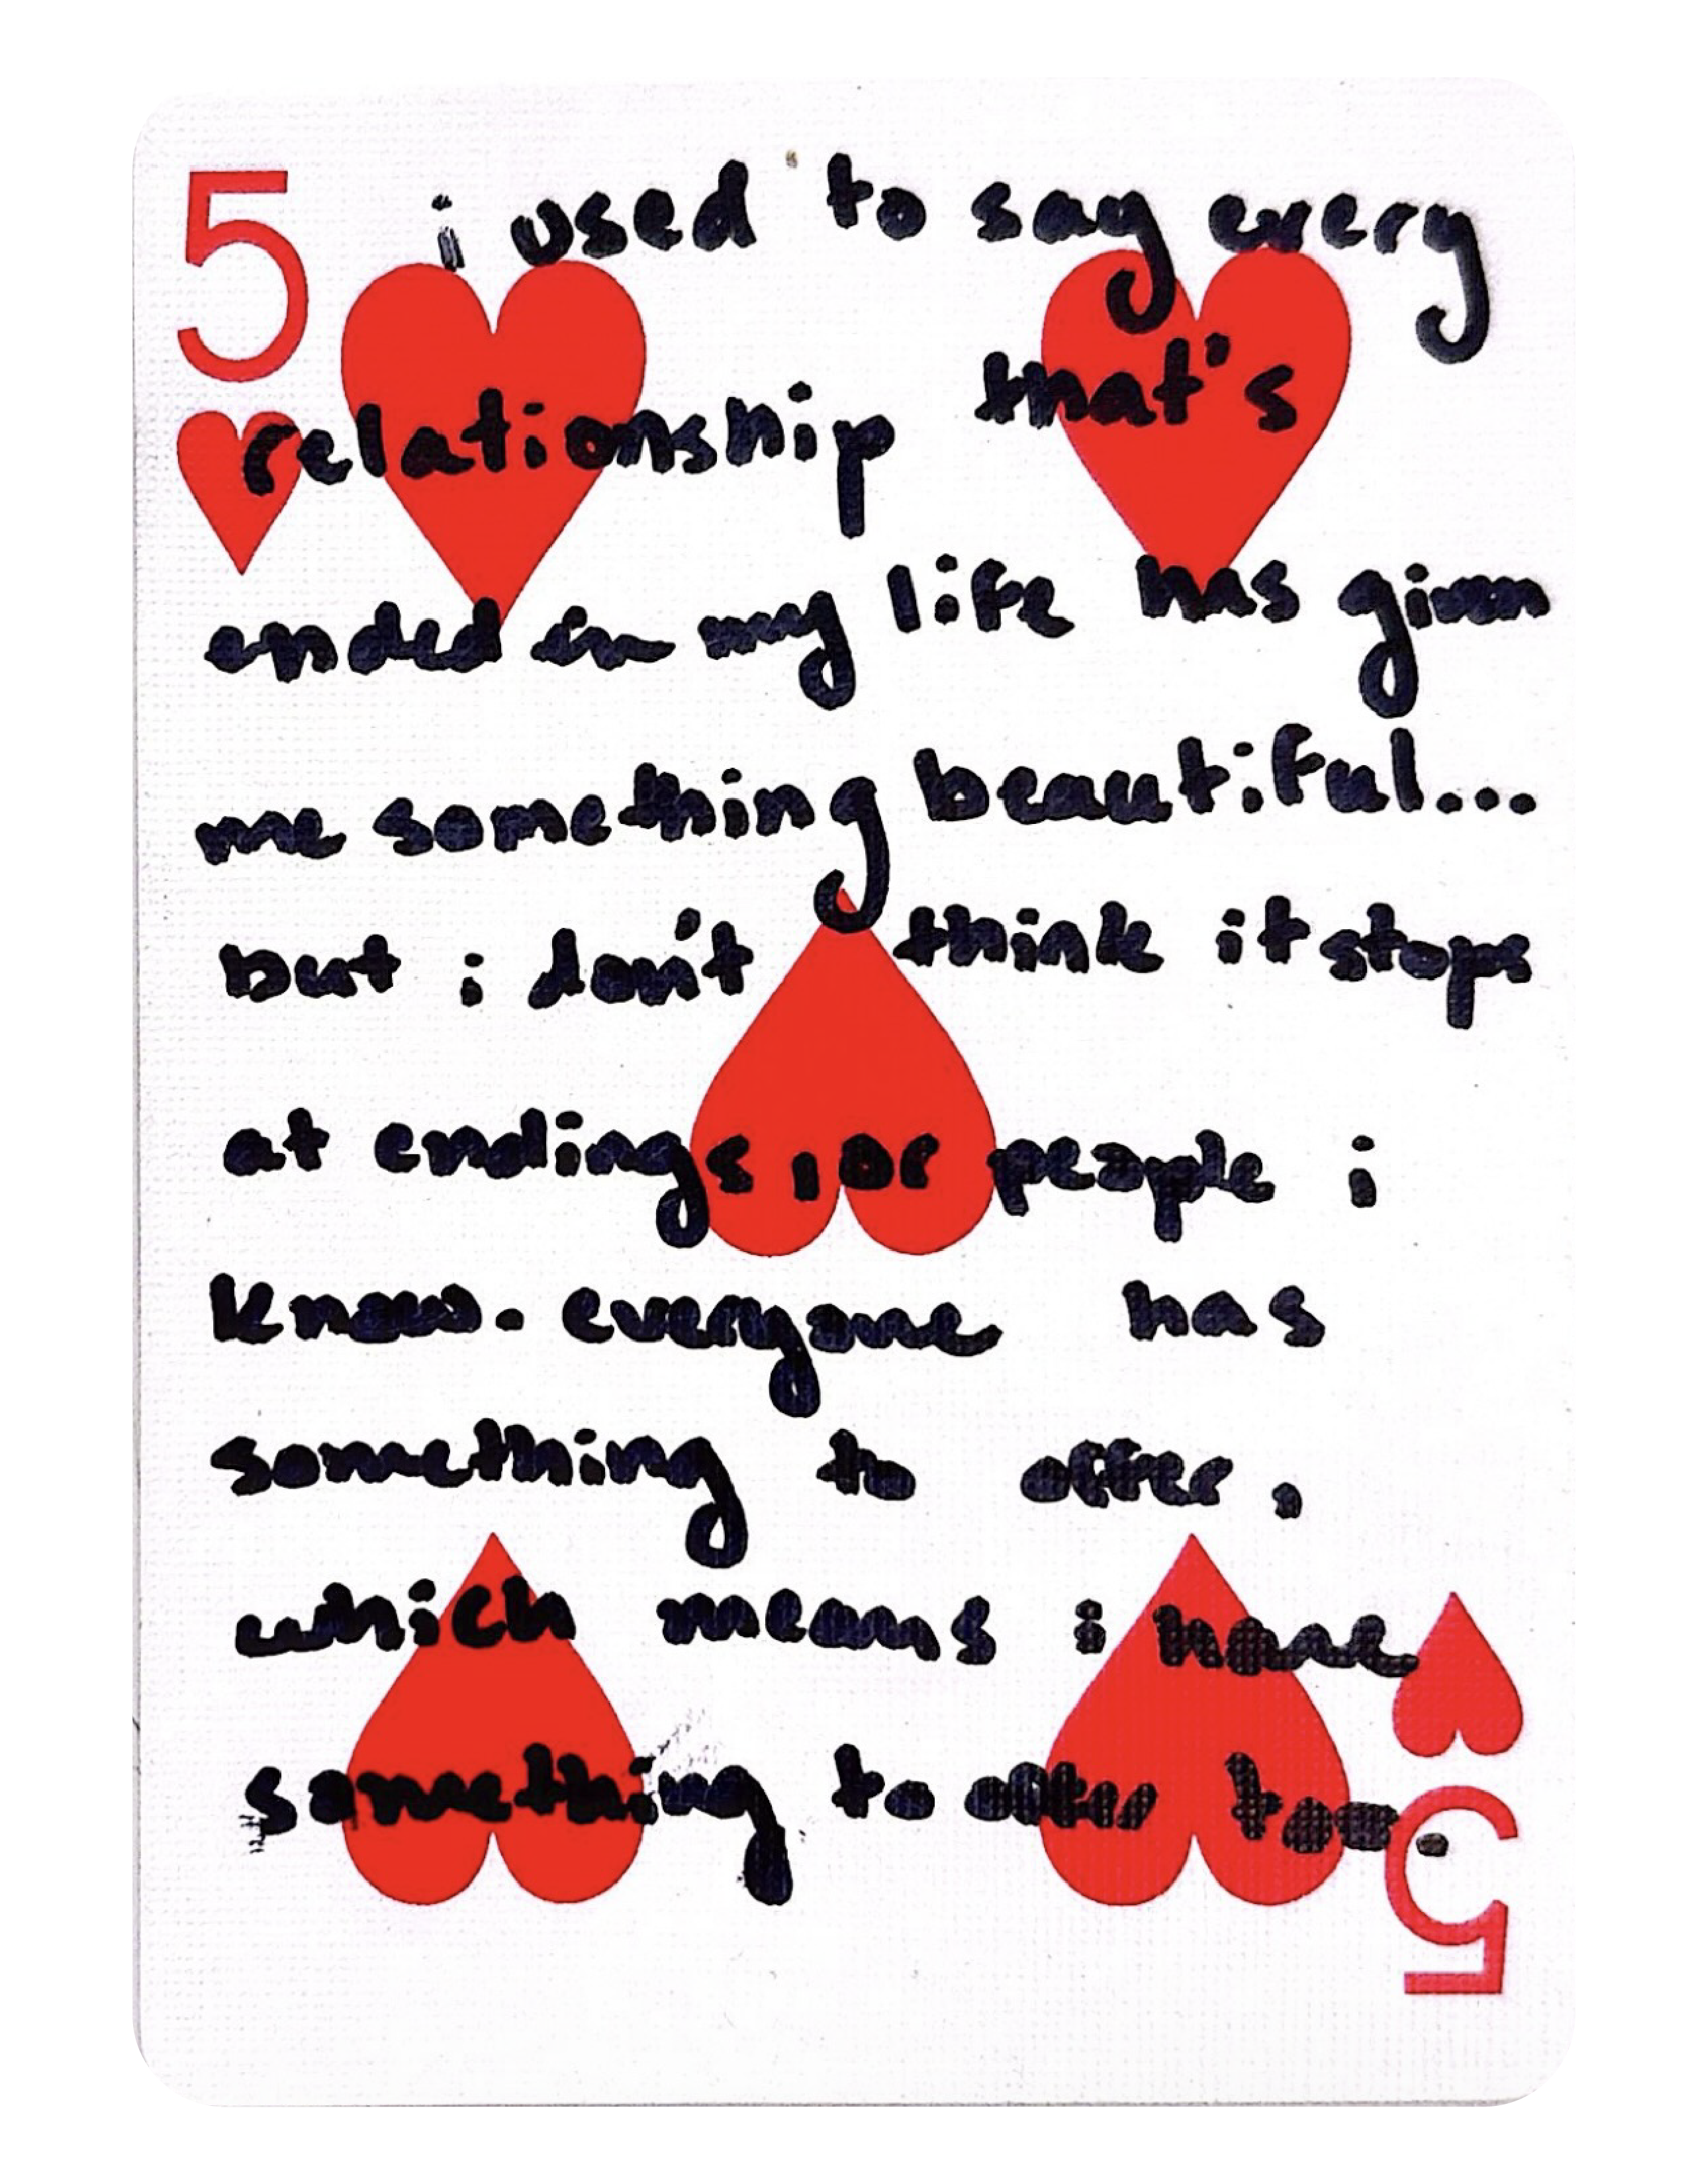 5
i used to say every
relationship that's
ended in my life has given
me something beautiful...
but i don't think it stops
at endings, or people i
know. everyone has
something to offer,
which means i have
something to offer too.
5